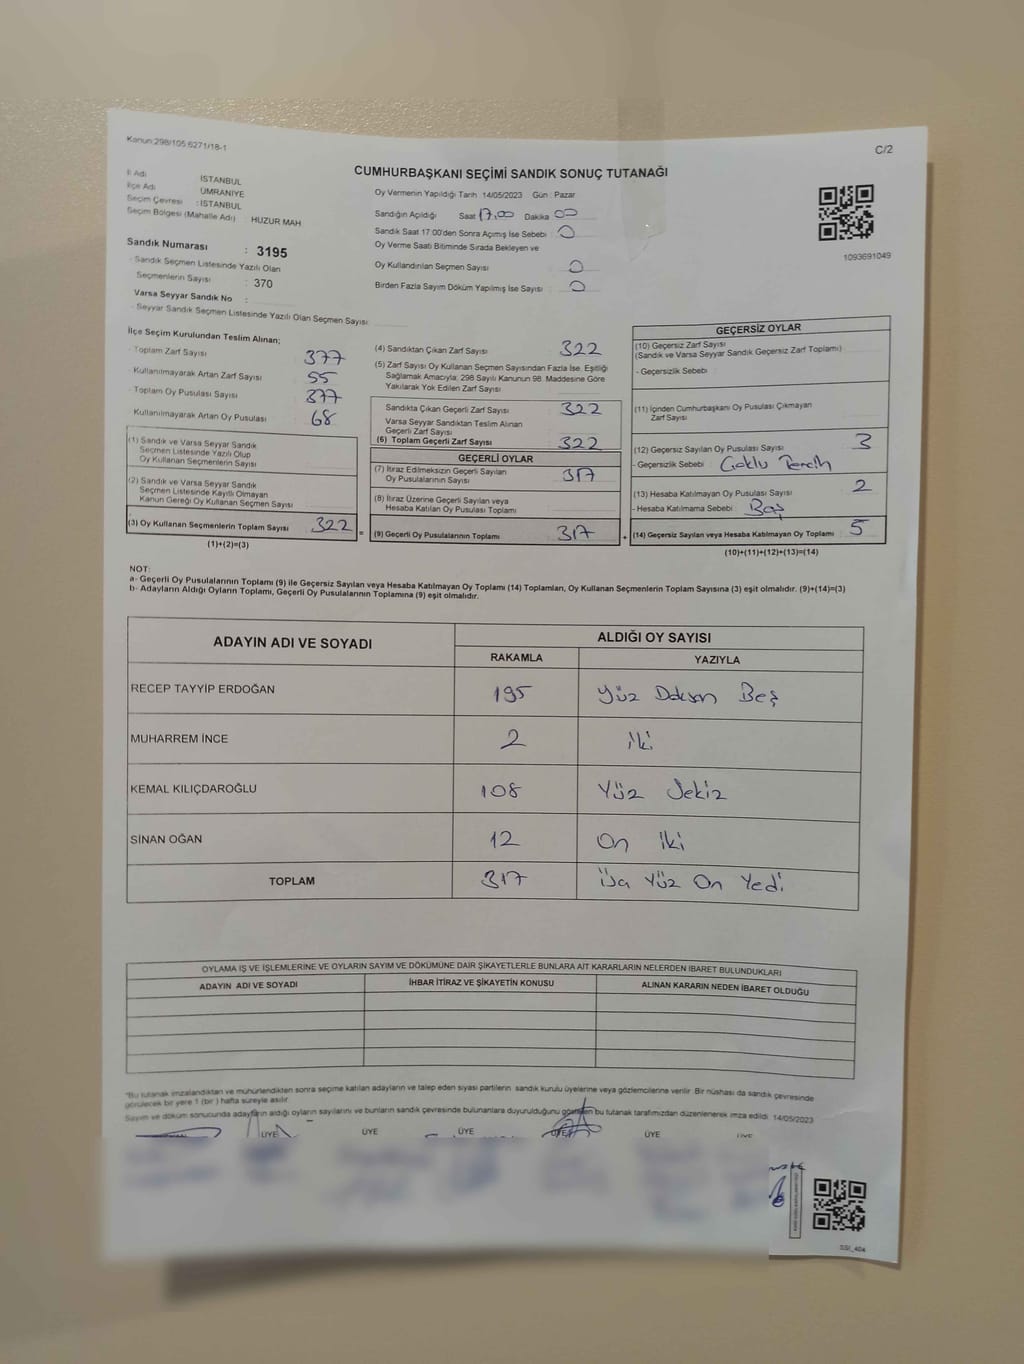 Kanun:298/105 6271/18-1
C/2
CUMHURBAŞKANI SEÇİMİ SANDIK SONUÇ TUTANAĞI
İl Adı : İSTANBUL
İlçe Adı : ÜMRANİYE
Seçim Çevresi : İSTANBUL
Seçim Bölgesi (Mahalle Adı) : HUZUR MAH
Sandık Numarası : 3195
- Sandık Seçmen Listesinde Yazılı Olan
Seçmenlerin Sayısı : 370
Varsa Seyyar Sandık No :
- Seyyar Sandık Seçmen Listesinde Yazılı Olan Seçmen Sayısı:
Oy Vermenin Yapıldığı Tarih : 14/05/2023 Gün : Pazar
Sandığın Açıldığı Saat 17,00 Dakika 00
Sandık Saat 17:00'den Sonra Açımış İse Sebebi : 0
Oy Verme Saati Bitiminde Sırada Bekleyen ve
Oy Kullandırılan Seçmen Sayısı : 0
Birden Fazla Sayım Döküm Yapılmış İse Sayısı : 0
1093691049
İlçe Seçim Kurulundan Teslim Alınan;
- Toplam Zarf Sayısı : 377
- Kullanılmayarak Artan Zarf Sayısı : 55
- Toplam Oy Pusulası Sayısı : 377
- Kullanılmayarak Artan Oy Pusulası : 68
(1) Sandık ve Varsa Seyyar Sandık
Seçmen Listesinde Yazılı Olup
Oy Kullanan Seçmenlerin Sayısı
(2) Sandık ve Varsa Seyyar Sandık
Seçmen Listesinde Kayıtlı Olmayan
Kanun Gereği Oy Kullanan Seçmen Sayısı
(3) Oy Kullanan Seçmenlerin Toplam Sayısı 322
(1)+(2)=(3)
(4) Sandıktan Çıkan Zarf Sayısı : 322
(5) Zarf Sayısı Oy Kullanan Seçmen Sayısından Fazla İse, Eşitliği
Sağlamak Amacıyla; 298 Sayılı Kanunun 98. Maddesine Göre
Yakılarak Yok Edilen Zarf Sayısı
Sandıkta Çıkan Geçerli Zarf Sayısı 322
Varsa Seyyar Sandıktan Teslim Alınan
Geçerli Zarf Sayısı
(6) Toplam Geçerli Zarf Sayısı 322
GEÇERLİ OYLAR
(7) İtiraz Edilmeksizin Geçerli Sayılan
Oy Pusulalarının Sayısı 317
(8) İtiraz Üzerine Geçerli Sayılan veya
Hesaba Katılan Oy Pusulası Toplamı
= (9) Geçerli Oy Pusulalarının Toplamı 317
GEÇERSİZ OYLAR
(10) Geçersiz Zarf Sayısı
(Sandık ve Varsa Seyyar Sandık Geçersiz Zarf Toplamı)
- Geçersizlik Sebebi :
(11) İçinden Cumhurbaşkanı Oy Pusulası Çıkmayan
Zarf Sayısı
(12) Geçersiz Sayılan Oy Pusulası Sayısı : 3
- Geçersizlik Sebebi : Çoklu Tercih
(13) Hesaba Katılmayan Oy Pusulası Sayısı : 2
- Hesaba Katılmama Sebebi : Boş
+ (14) Geçersiz Sayılan veya Hesaba Katılmayan Oy Toplamı 5
(10)+(11)+(12)+(13)=(14)
NOT:
a- Geçerli Oy Pusulalarının Toplamı (9) ile Geçersiz Sayılan veya Hesaba Katılmayan Oy Toplamı (14) Toplamları, Oy Kullanan Seçmenlerin Toplam Sayısına (3) eşit olmalıdır. (9)+(14)=(3)
b- Adayların Aldığı Oyların Toplamı, Geçerli Oy Pusulalarının Toplamına (9) eşit olmalıdır.
ADAYIN ADI VE SOYADI
ALDIĞI OY SAYISI
RAKAMLA YAZIYLA
RECEP TAYYİP ERDOĞAN 195 Yüz Doksan Beş
MUHARREM İNCE 2 iki
KEMAL KILIÇDAROĞLU 108 Yüz Sekiz
SİNAN OĞAN 12 On iki
TOPLAM 317 Yüz On Yedi
OYLAMA İŞ VE İŞLEMLERİNE VE OYLARIN SAYIM VE DÖKÜMÜNE DAİR ŞİKAYETLERLE BUNLARA AİT KARARLARIN NELERDEN İBARET BULUNDUKLARI
ADAYIN ADI VE SOYADI İHBAR İTİRAZ VE ŞİKAYETİN KONUSU ALINAN KARARIN NEDEN İBARET OLDUĞU
*Bu tutanak imzalandıktan ve mühürlendikten sonra seçime katılan adayların ve talep eden siyasi partilerin sandık kurulu üyelerine veya gözlemcilerine verilir. Bir nüshası da sandık çevresinde
görülecek bir yere 1 (bir ) hafta süreyle asılır.
Sayım ve döküm sonucunda adayların aldığı oyların sayılarını ve bunların sandık çevresinde bulunanlara duyurulduğunu gösteren bu tutanak tarafımızdan düzenlenerek imza edildi. 14/05/2023
ÜYE ÜYE ÜYE ÜYE ÜYE ÜYE
SSI_404